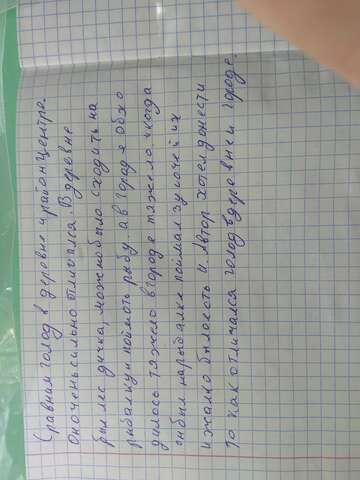 Сравним голод в деревне и райёнцентре.
Он очень сильно отличался. В деревне
был лес дичка, можно было сходить на
рибалкуи поймоть рыбу. а в городе обхо
дилось тяжело вгороде тяжело икогда
онбыл нарыбалке поймал зуючей их
ижалко былоесть и. Автор хотел донести
то как отличался голод вдеровне и городе.